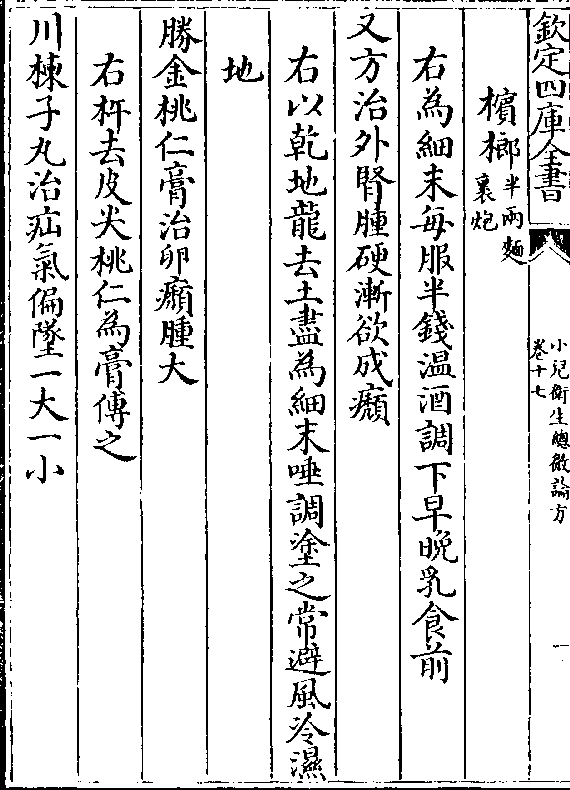 欽定四庫全書
小兒衛生總微論方
卷十七
檳榔半兩麵
裏炮
右為細末每服半錢温酒調下早晚乳食前
又方治外腎腫硬漸欲成㿗
右以乾地龍去土盡為細末唾調塗之常避風冷濕
地
勝金桃仁膏治卵㿗腫大
右杵去皮尖桃仁為膏傅之
川楝子丸治疝氣偏墜一大一小